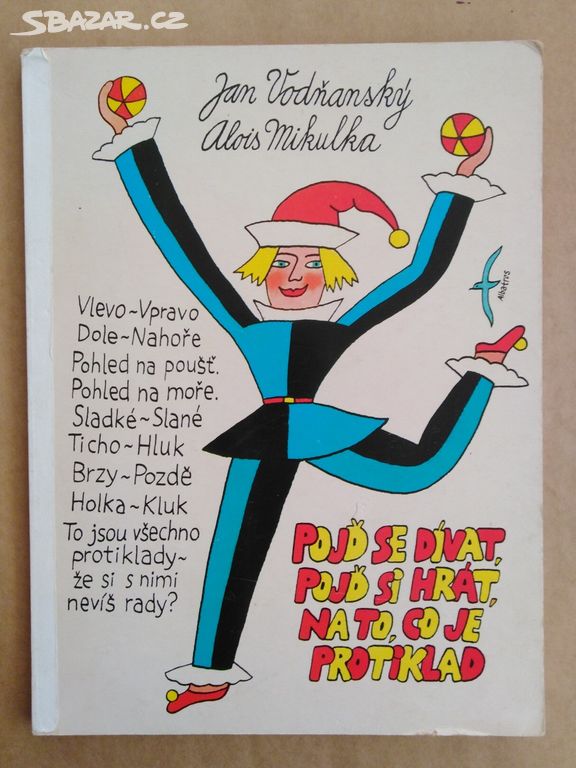 SBAZAR.CZ
Jan Vodňanský
Alois Mikulka
Albatros
Vlevo~Vpravo
Dole~Nahoře
Pohled na poušť.
Pohled na moře.
Sladké~Slané
Ticho~Hluk
Brzy~Pozdě
Holka~Kluk
To jsou všechno
protiklady~
že si s nimi
nevíš rady?
POJĎ SE DÍVAT,
POJĎ SI HRÁT,
NA TO, CO JE
PROTIKLAD